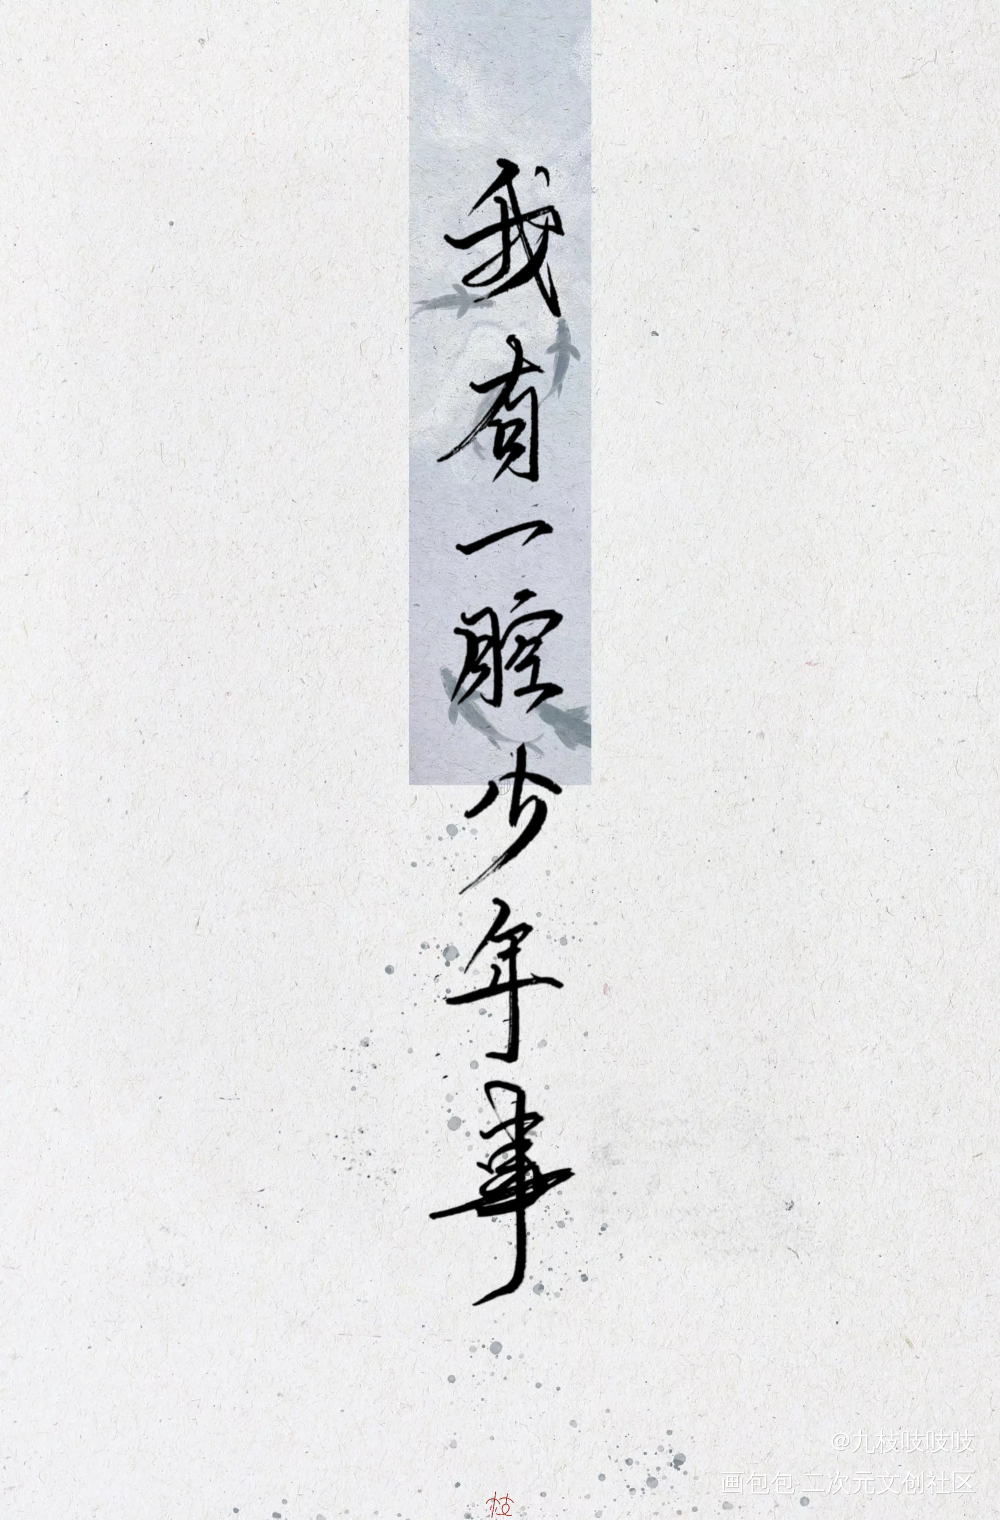 我有一腔少年事
@九枝吱吱吱
画包包 二次元文创社区
枝